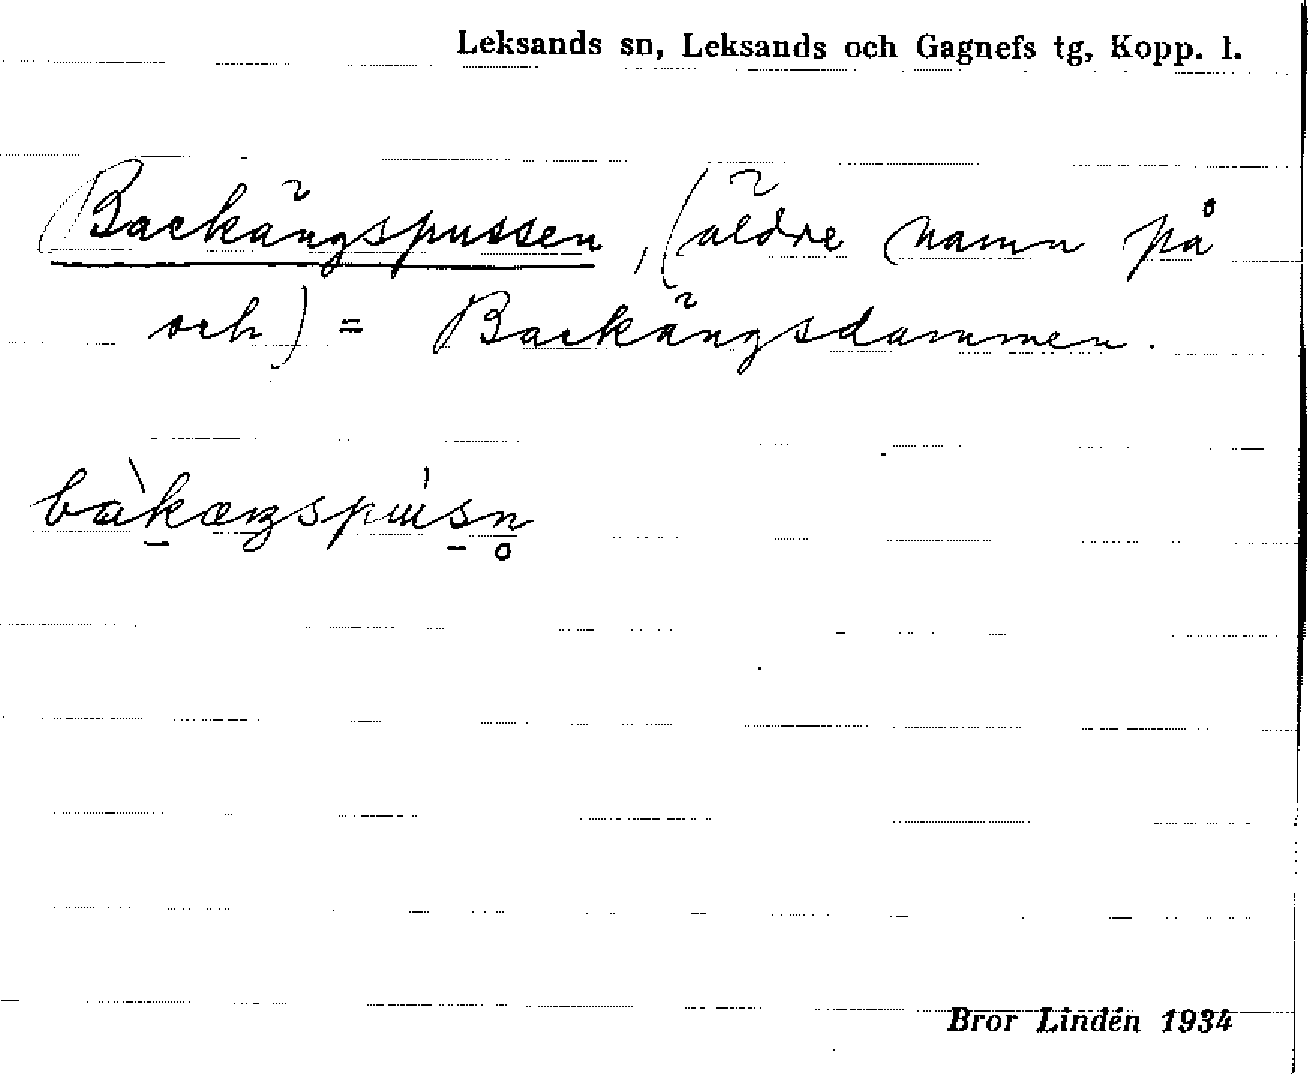 Leksands sn, Leksands och Gagnefs tg, Kopp. l.
Backängspussen, (äldre namn på
och) = Backängsdammen.
bàk̠æŋspús̠n̥
Bror Lindén 1934